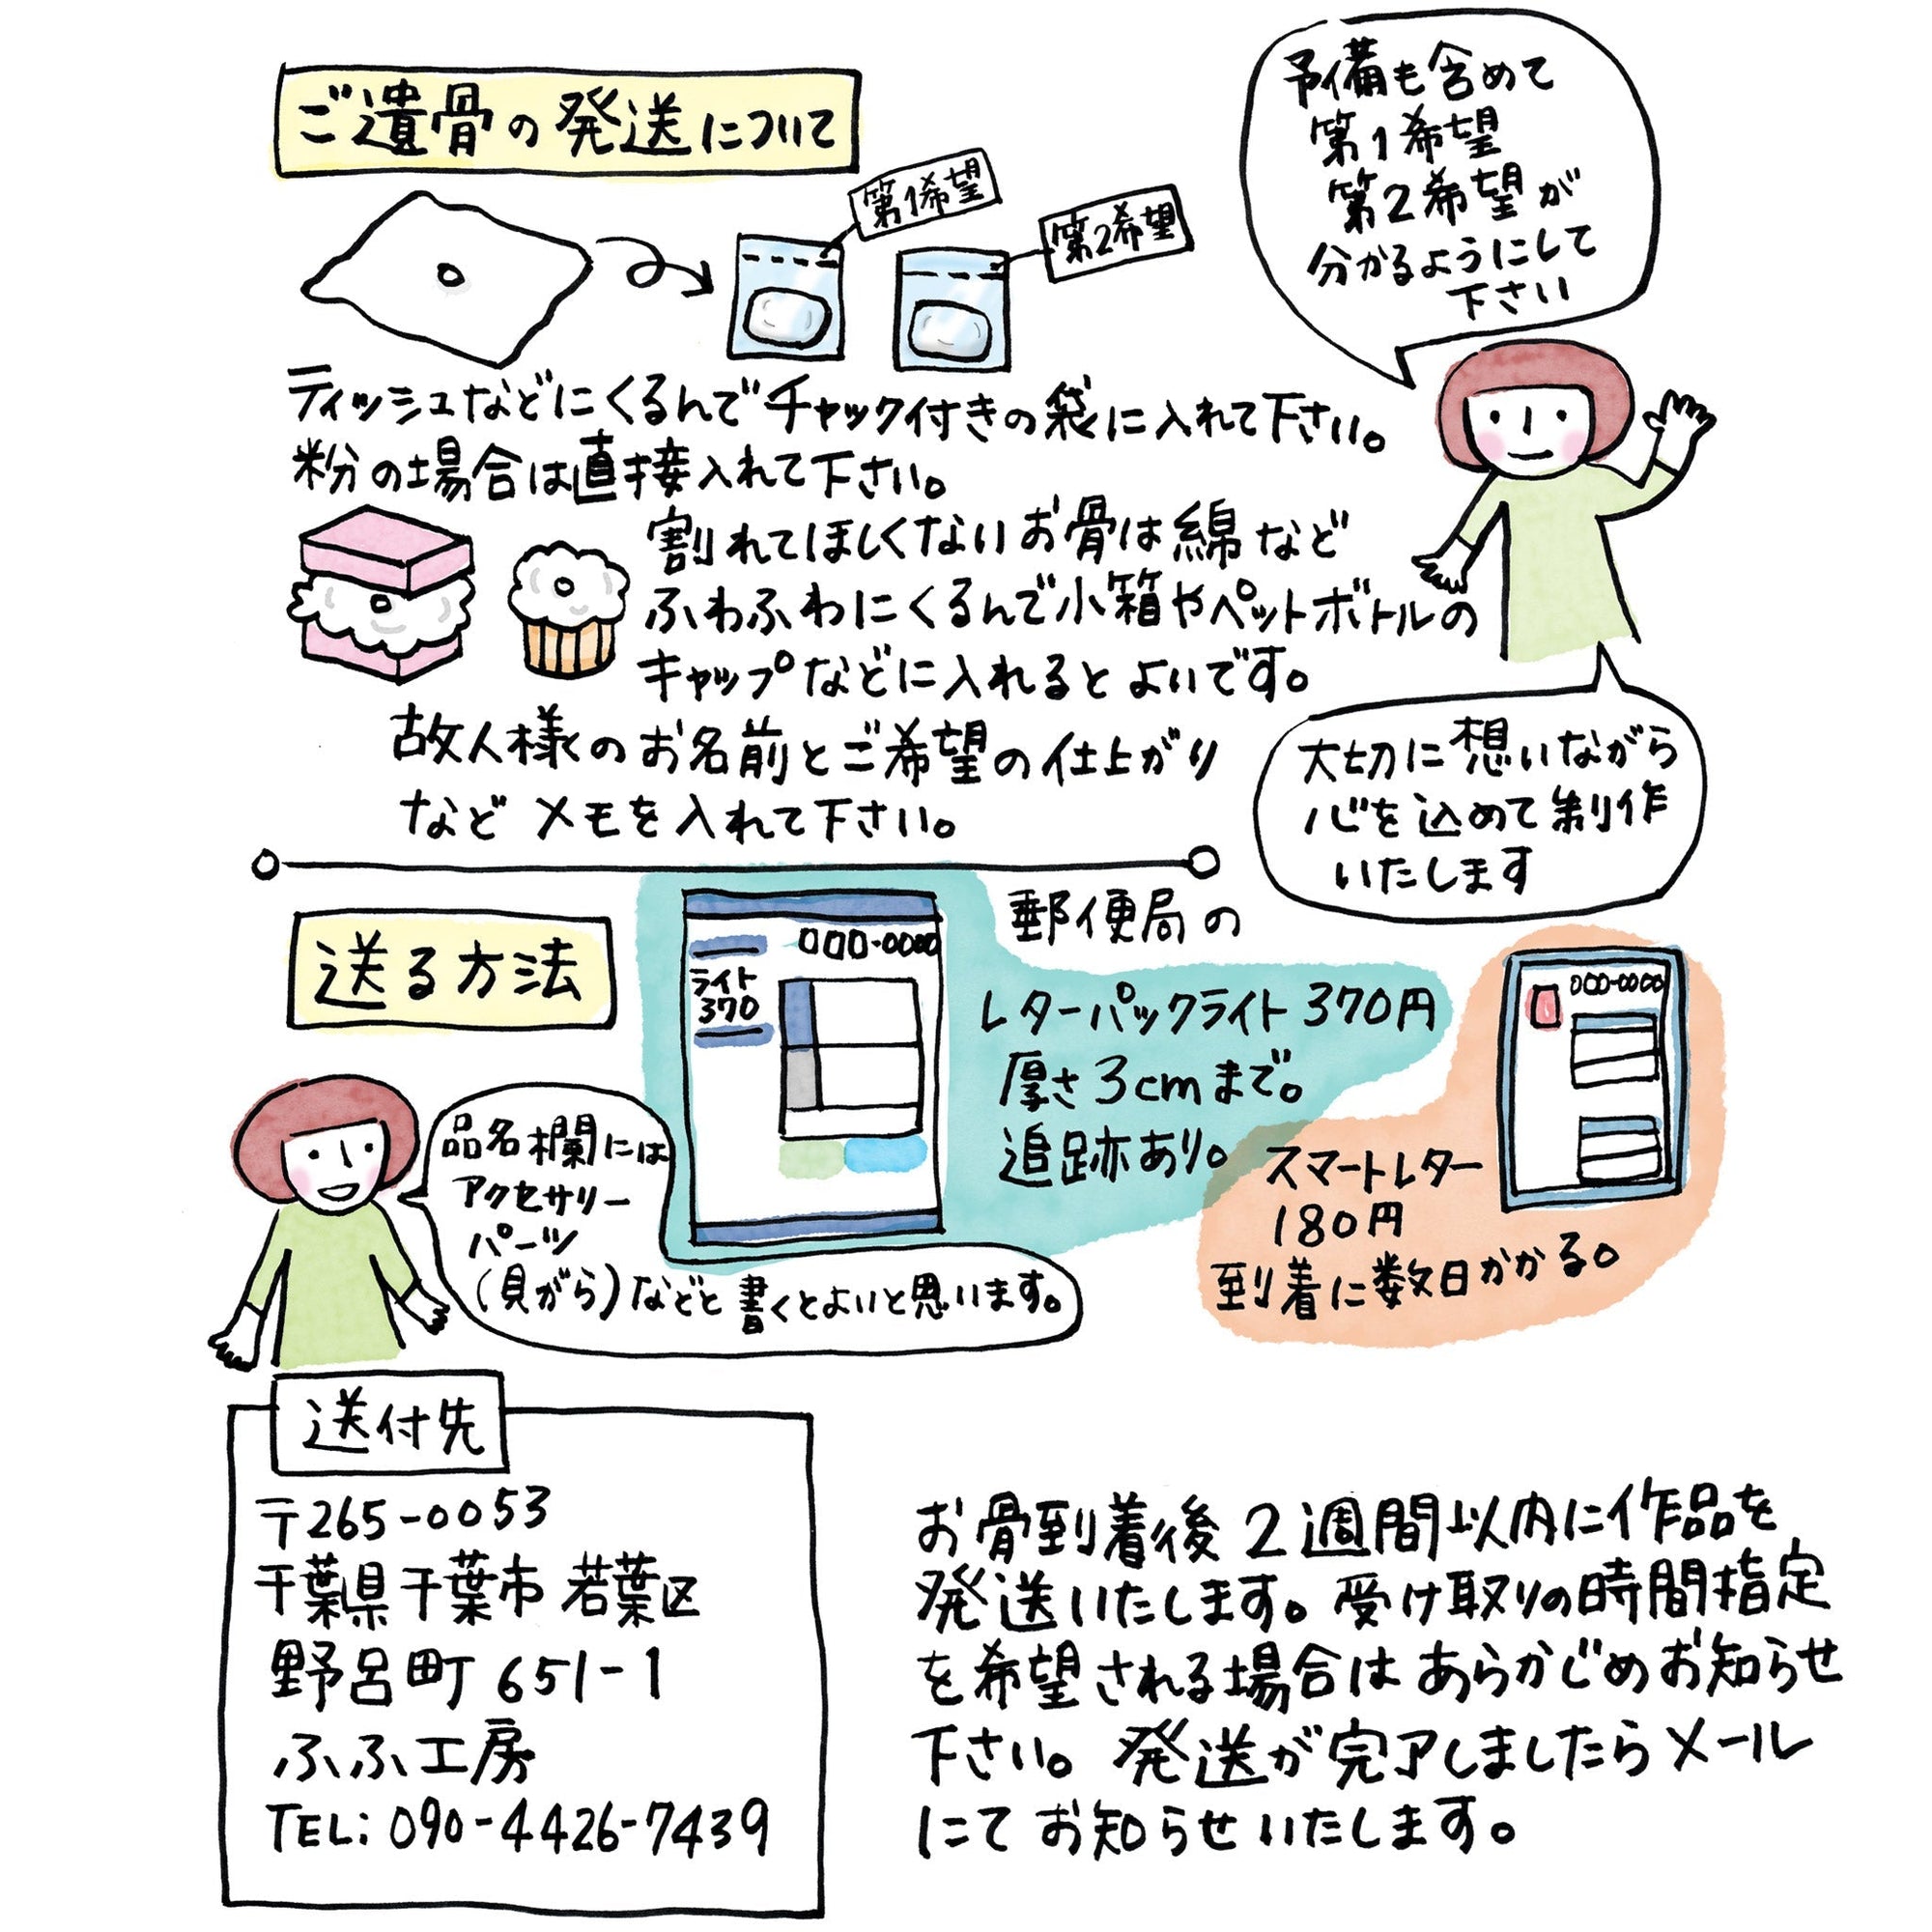 ご遺骨の発送について
第1希望
第2希望
予備も含めて
第1希望
第2希望が
分かるようにして
下さい
ティッシュなどにくるんでチャック付きの袋に入れて下さい。
粉の場合は直接入れて下さい。
割れてほしくないお骨は綿など
ふわふわにくるんで小箱やペットボトルの
キャップなどに入れるとよいです。
故人様のお名前とご希望の仕上がり
など メモを入れて下さい。
大切に想いながら
心を込めて制作
いたします
送る方法
000-0000
ライト
370
郵便局の
レターパックライト 370円
厚さ3cmまで。
追跡あり。
000-0000
スマートレター
180円
到着に数日かかる。
品名欄には
アクセサリー
パーツ
(貝がら)などと書くとよいと思います。
送付先
〒265-0053
千葉県千葉市 若葉区
野呂町 651-1
ふふ工房
TEL: 090-4426-7439
お骨到着後 2週間以内に作品を
発送いたします。受け取りの時間指定
を希望される場合はあらかじめお知らせ
下さい。発送が完了しましたらメール
にてお知らせいたします。